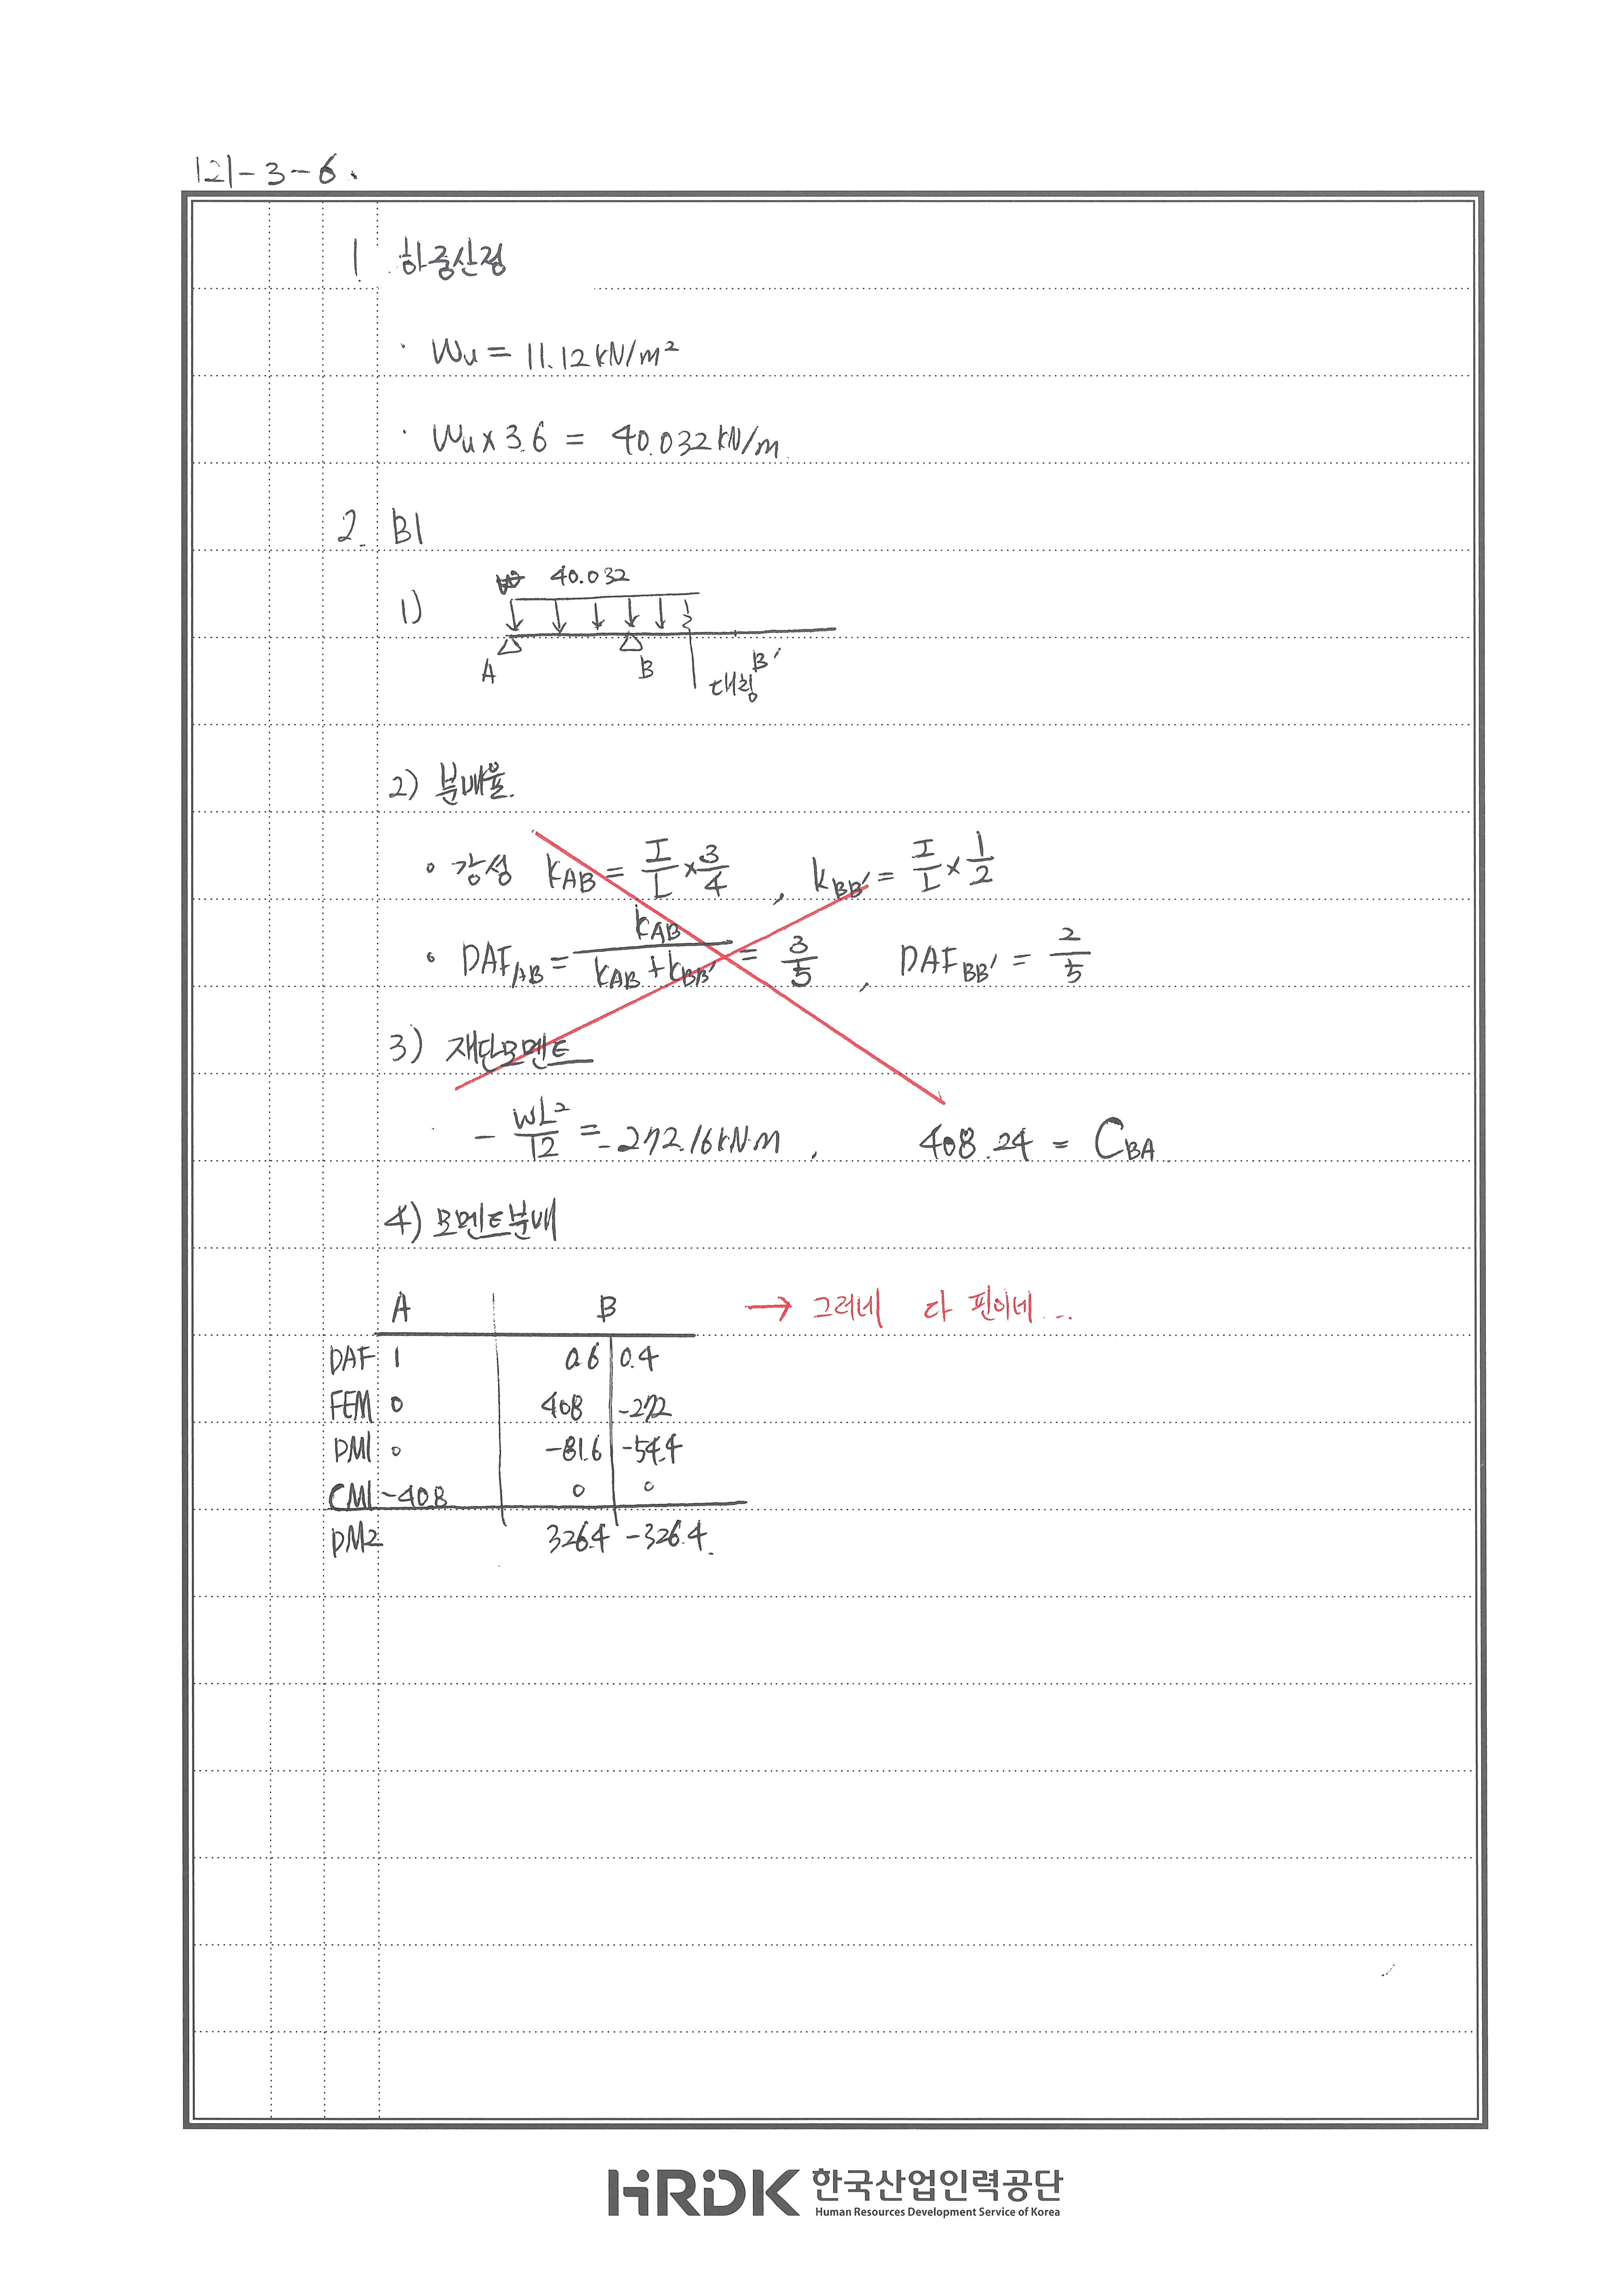 121-3-6.
1. 하중산정
· Wu = 11.12 kN/m²
· Wu x 3.6 = 40.032 kN/m
2. B1
1) 40.032
A B B'
대칭
2) 분배율.
· 강성 kAB = I/L x 3/4 , kBB' = I/L x 1/2
· DAFAB = kAB / kAB + kBB' = 3/5 , DAFBB' = 2/5
3) 재단모멘트
- wL²/12 = -272.16 kN·m , 408.24 = CBA
4) 모멘트분배
A B → 그러네 다 핀이네...
DAF 1 0.6 0.4
FEM 0 408 -272
DM1 0 -81.6 -54.4
CM1 -40.8 0 0
DM2 326.4 -326.4
HRDK 한국산업인력공단
Human Resources Development Service of Korea